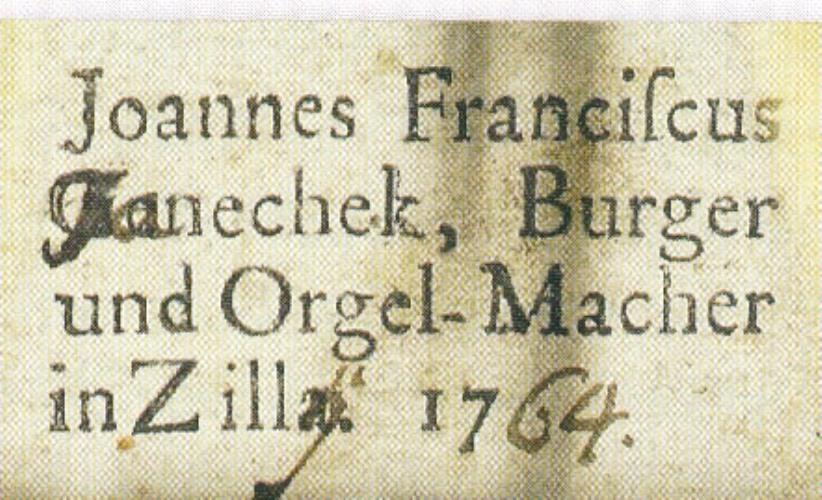 Joannes Franciſcus
Janechek, Burger
und Orgel-Macher
in Zilla. 1764.